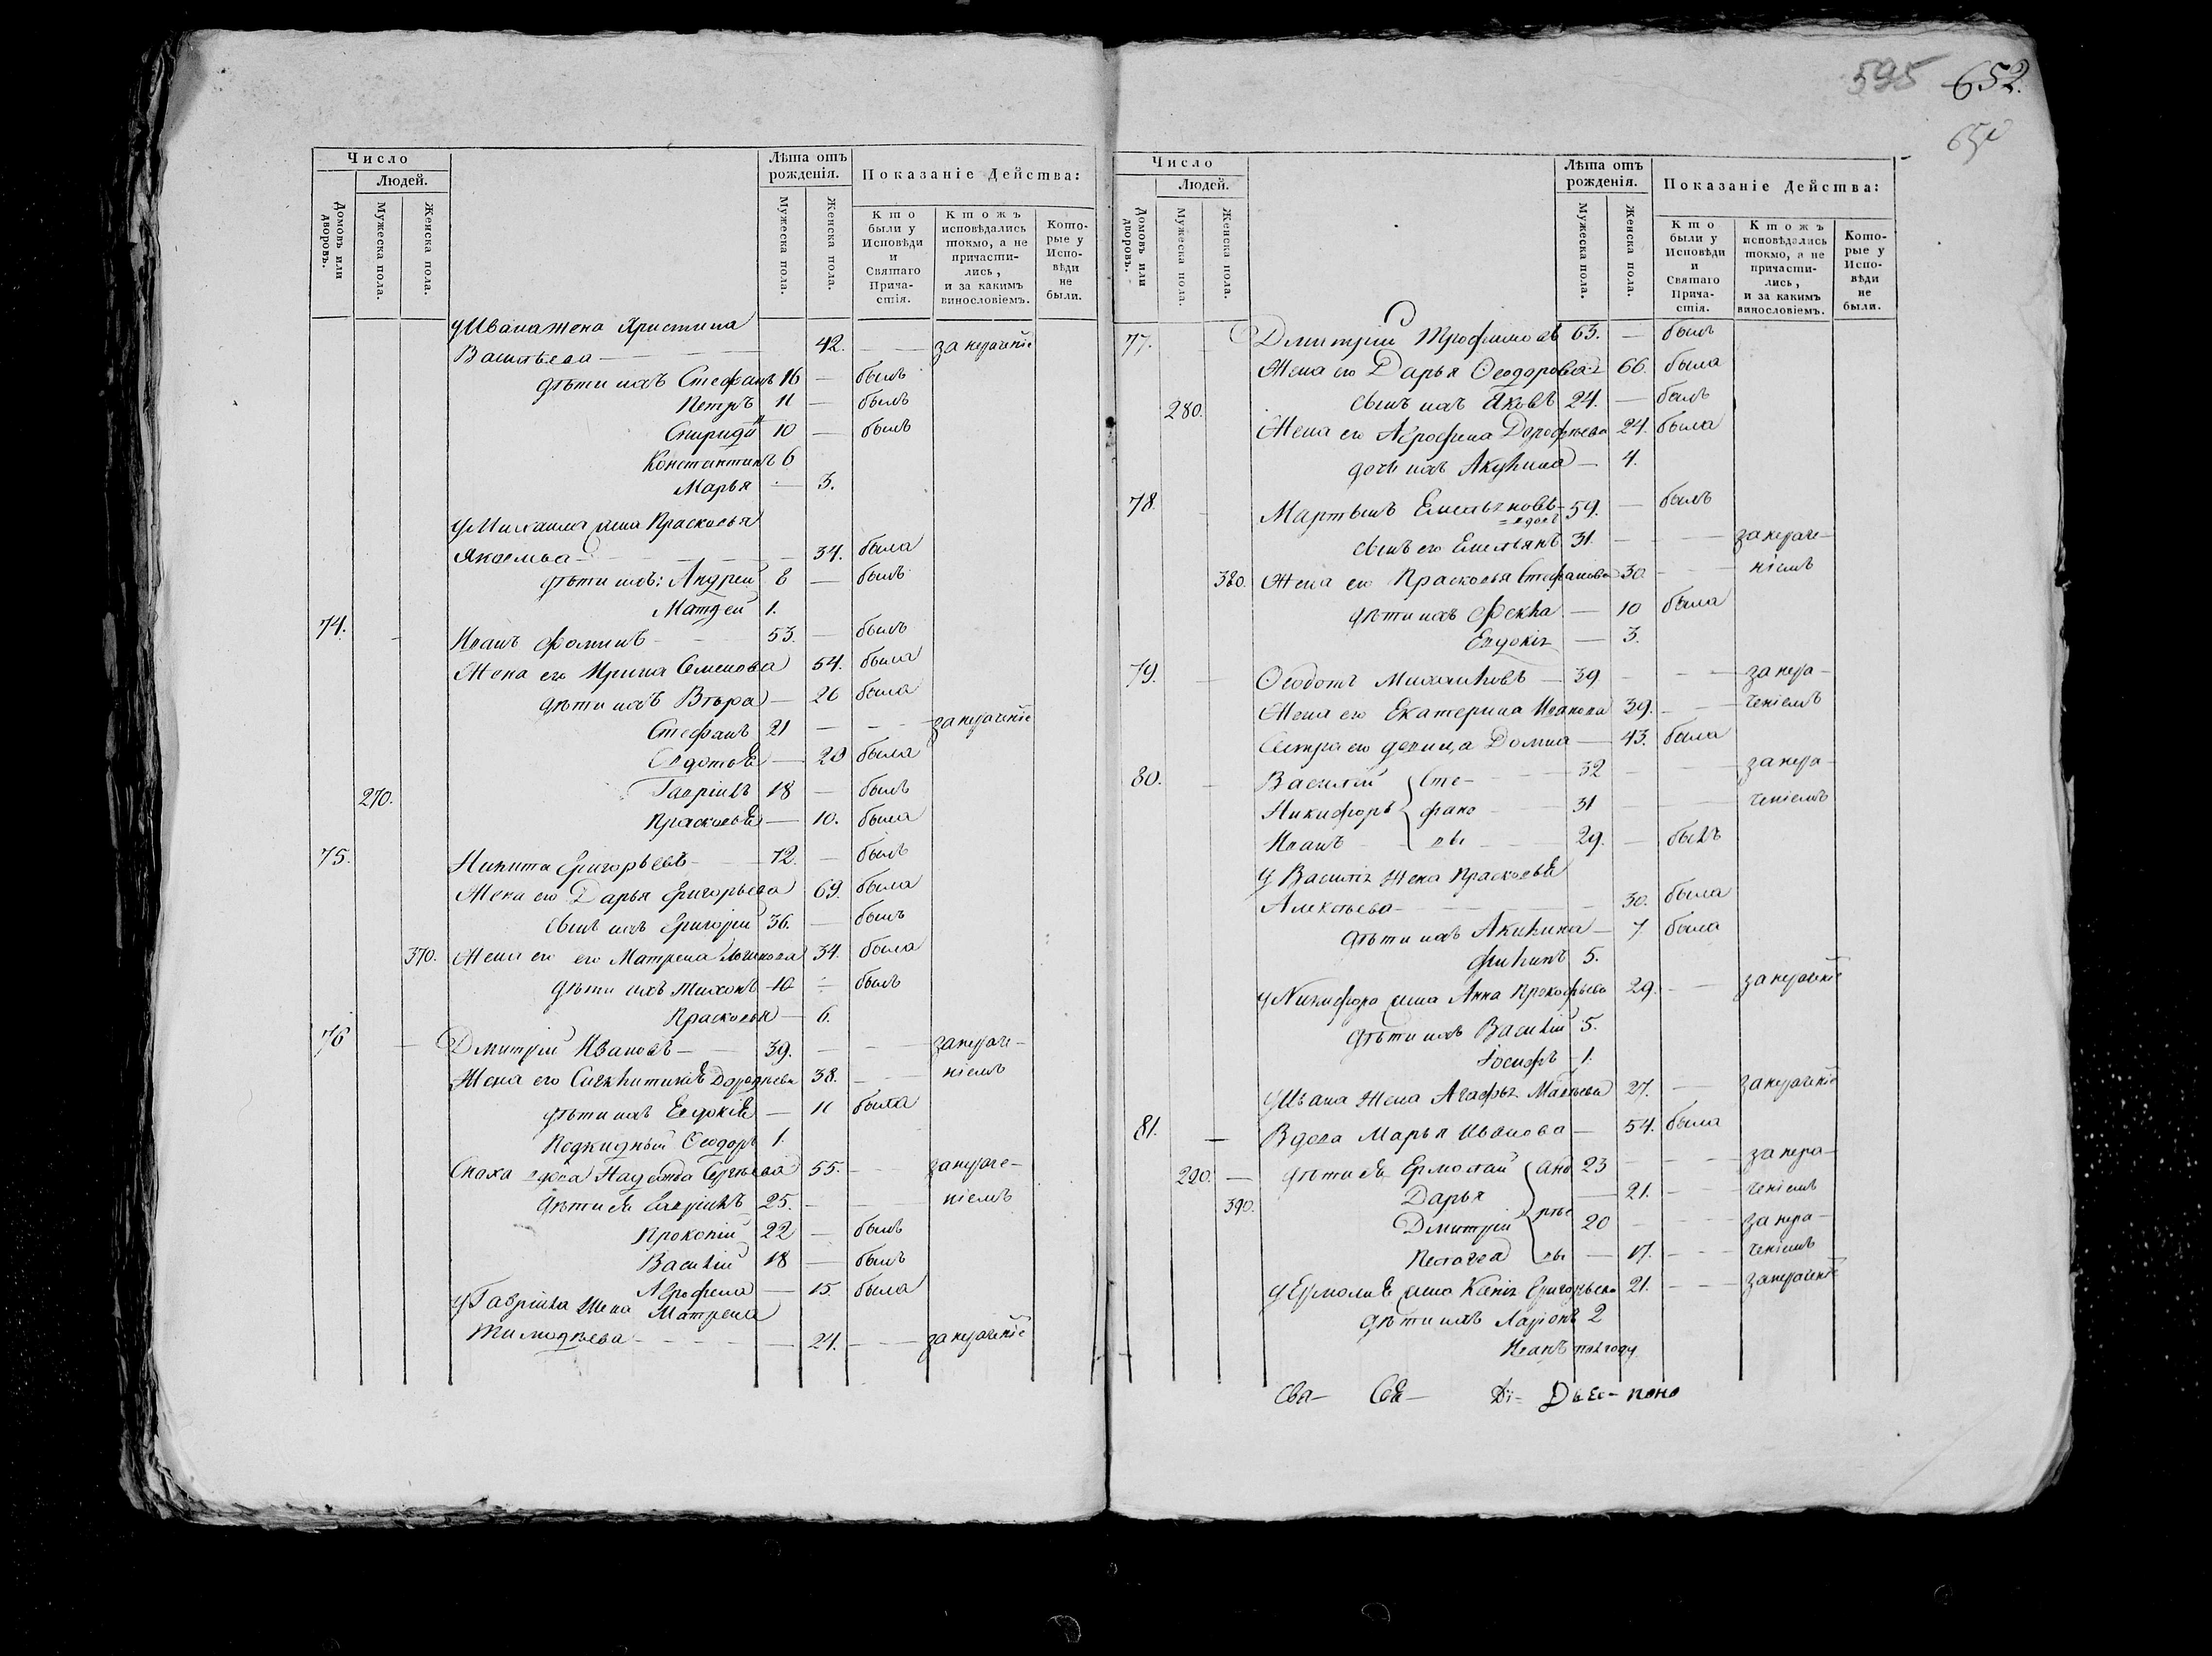 595 652.
650
Число
Людей.
Домовъ или дворовъ.
Мужеска пола.
Женска пола.
Лѣта отъ рожденія.
Мужеска пола.
Женска пола.
Показаніе Действа:
Кто были у Исповѣди и Святаго Причастія.
Ктожъ исповѣдались токмо, а не причастились, и за какимъ винословіемъ.
Которые у Исповѣди не были.
у Ивана жена Христина
Васильева 42. за нераченіе
дѣти ихъ Стефанъ 16 — былъ
Петръ 11 — былъ
Спиридонъ 10 — былъ
Константинъ 6
Марья — 3.
у Михаила жена Прасковья
Яковлева — 34. была
дѣти ихъ: Андрей 8 — былъ
Матвей 1.
74. Иванъ Фоминъ 53. — былъ
Жена его Ирина Семенова 54. была
дѣти ихъ Вѣра — 26 была
Стефанъ 21 — за нераченіе
Федотья — 20 была
270. Гавріилъ 18 — былъ
Прасковья — 10. была
75. Никита Григорьевъ 72. — былъ
Жена его Дарья Григорьева 69. была
сынъ ихъ Григорій 36. — былъ
370. Жена его Матрена Логинова 34. была
дѣти ихъ Тихонъ 10 — былъ
Прасковья — 6.
76 Дмитрій Ивановъ — 39. — за нераче-
Жена его Сигклитикія Дорофѣева 38. — ніемъ
дѣти ихъ Евдокія — 11 была
Подкидный Феодоръ 1.
Сноха вдова Надежда Сергѣева 55. за нераче-
дѣти ея Гавріилъ 25. — ніемъ
Прокопій 22 — былъ
Василій 18 — былъ
Агрофена — 15 была
у Гавріила жена Матрена
Тимофѣева — 24. — за нераченіе
Число
Людей.
Домовъ или дворовъ.
Мужеска пола.
Женска пола.
Лѣта отъ рожденія.
Мужеска пола.
Женска пола.
Показаніе Действа:
Кто были у Исповѣди и Святаго Причастія.
Ктожъ исповѣдались токмо, а не причастились, и за какимъ винословіемъ.
Которые у Исповѣди не были.
77. Дмитрій Трофимовъ 63. — былъ
Жена его Дарья Феодорова 66. была
280. сынъ ихъ Яковъ 24. — былъ
Жена его Агрофена Дорофѣева 24. была
дочь ихъ Акулина — 4.
78. Мартынъ Емельяновъ вдовъ 59. — былъ
сынъ его Емельянъ 31. — за нераче-
380. Жена его Прасковья Стефанова 30 — ніемъ
дѣти ихъ Фекла — 10 была
Евдокія — 3.
79. Феодотъ Михайловъ — 39 — за нера-
Жена его Екатерина Иванова 39. — ченіемъ
Сестра его девица Домна — 43. была
80. Василій Сте- 32 — за нера-
Никифоръ фано 31 — ченіемъ
Иванъ вы 29. — былъ
у Василія жена Прасковья
Алексѣева — 30. была
дѣти ихъ Акилина — 7 была
Филипъ 5.
у Никифора жена Анна Прокофьева 29. — за нераченіе
дѣти ихъ Василій 5.
Іосифъ 1.
у Ивана жена Агафья Матвѣева 27. — за нераченіе
81. — Вдова Марья Иванова — 54. была
290. — дѣти ея Ермолай Анд 23 — за нера-
390. Дарья — 21. — ченіемъ
Дмитрій рѣе 20 — за нера-
Пелагея вы — 17. — ченіемъ
у Ермолая жена Ксенія Григорьева 21. — за нераченіе
дѣти ихъ Ларіонъ 2
Иванъ полгоду
Свя- Ди- Дьяс- поно